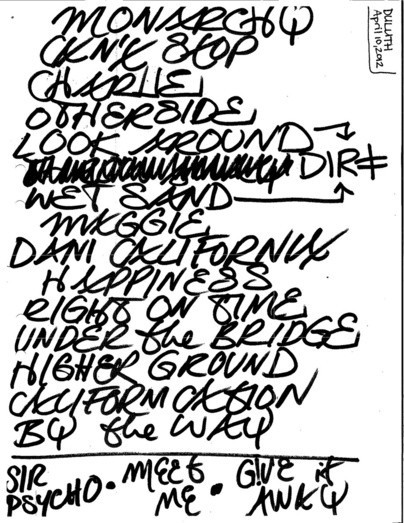 DULUTH
April 10, 2012
MONARCHY
CAN'T STOP
CHARLIE
OTHERSIDE
LOOK AROUND
DIRT
WET SAND
MAGGIE
DANI CALIFORNIA
HAPPINESS
RIGHT ON TIME
UNDER the BRIDGE
HIGHER GROUND
CALIFORNICATION
BY the WAY
SIR PSYCHO • MEET ME • GIVE it AWAY